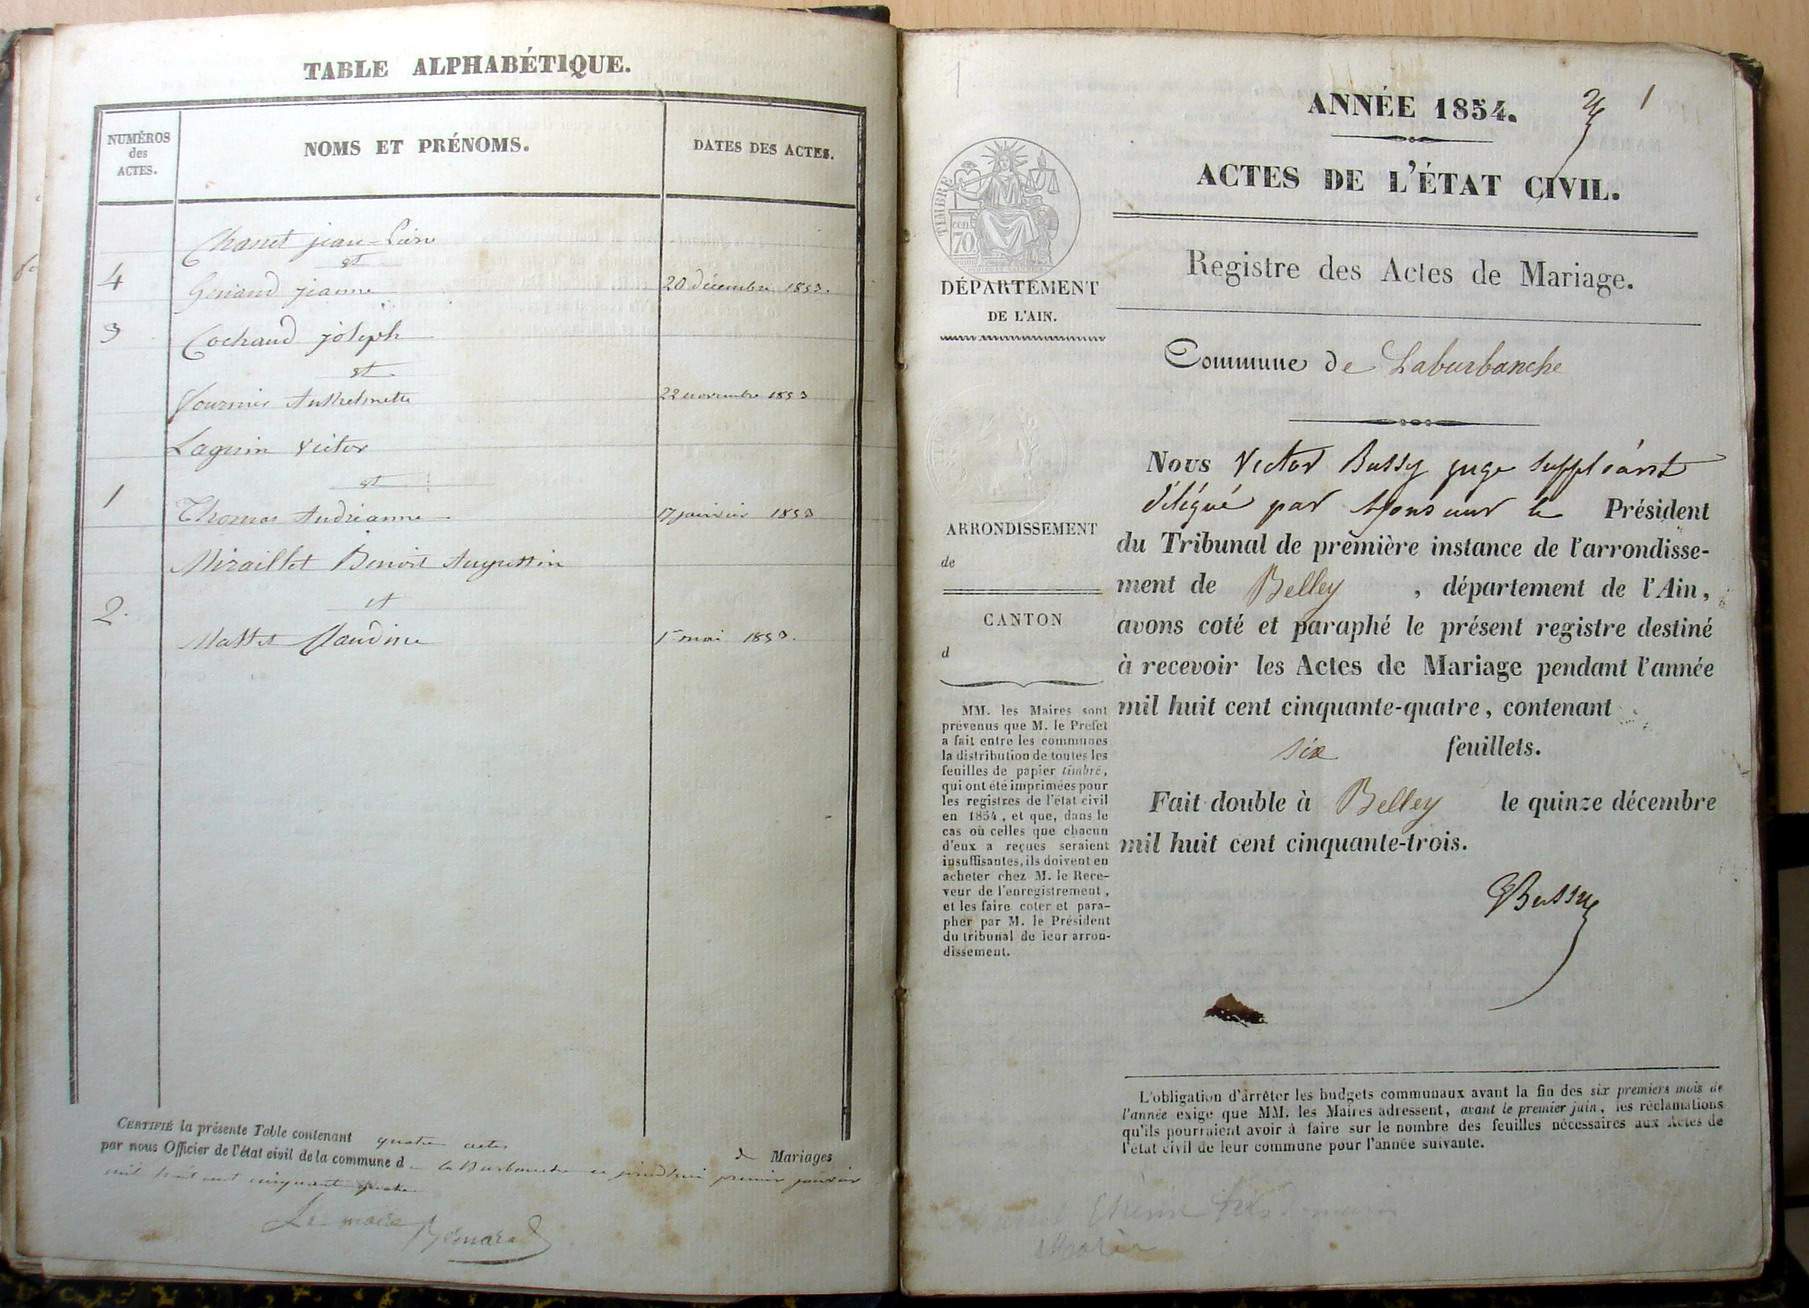 TABLE ALPHABÉTIQUE.
NUMÉROS
des
ACTES.
NOMS ET PRÉNOMS.
DATES DES ACTES.
Chanet jean-
et
4
jeanne
20 décembre 1853.
3
Cochaud joseph
et
Fournier Anthelmette
22 novembre 1853
Laguin victor
et
1
Thomas Andrianne
17 janvier 1853
Miraillet Benoit Augustin
et
2.
Claudine
1er mai 1853.
CERTIFIÉ la présente Table contenant quatre actes
de Mariages
par nous Officier de l'état civil de la commune de la Burbanche premier janvier
mil huit cent cinquante quatre
Le maire
1
ANNÉE 1854.
1
ACTES DE L'ÉTAT CIVIL.
TIMBRE
cen
70
Registre des Actes de Mariage.
DÉPARTEMENT
DE L'AIN.
Commune de Laburbanche
Nous Victor Bussy juge suppléant
délégué par Monsieur le Président
du Tribunal de première instance de l'arrondisse-
ment de Belley , département de l'Ain,
avons coté et paraphé le présent registre destiné
à recevoir les Actes de Mariage pendant l'année
mil huit cent cinquante-quatre, contenant
six feuillets.
Fait double à Belley le quinze décembre
mil huit cent cinquante-trois.
Bussy
ARRONDISSEMENT
de
CANTON
d
MM. les Maires sont
prévenus que M. le Préfet
a fait entre les communes
la distribution de toutes les
feuilles de papier timbré,
qui ont été imprimées pour
les registres de l'état civil
en 1854, et que, dans le
cas où celles que chacun
d'eux a reçues seraient
insuffisantes, ils doivent en
acheter chez M. le Rece-
veur de l'enregistrement,
et les faire coter et para-
pher par M. le Président
du tribunal de leur arron-
dissement.
L'obligation d'arrêter les budgets communaux avant la fin des six premiers mois de
l'année exige que MM. les Maires adressent, avant le premier juin, les réclamations
qu'ils pourraient avoir à faire sur le nombre des feuilles nécessaires aux Actes de
l'état civil de leur commune pour l'année suivante.